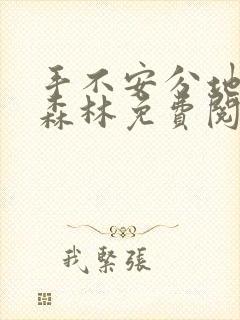 手不安分地
森林免費閱
我緊張